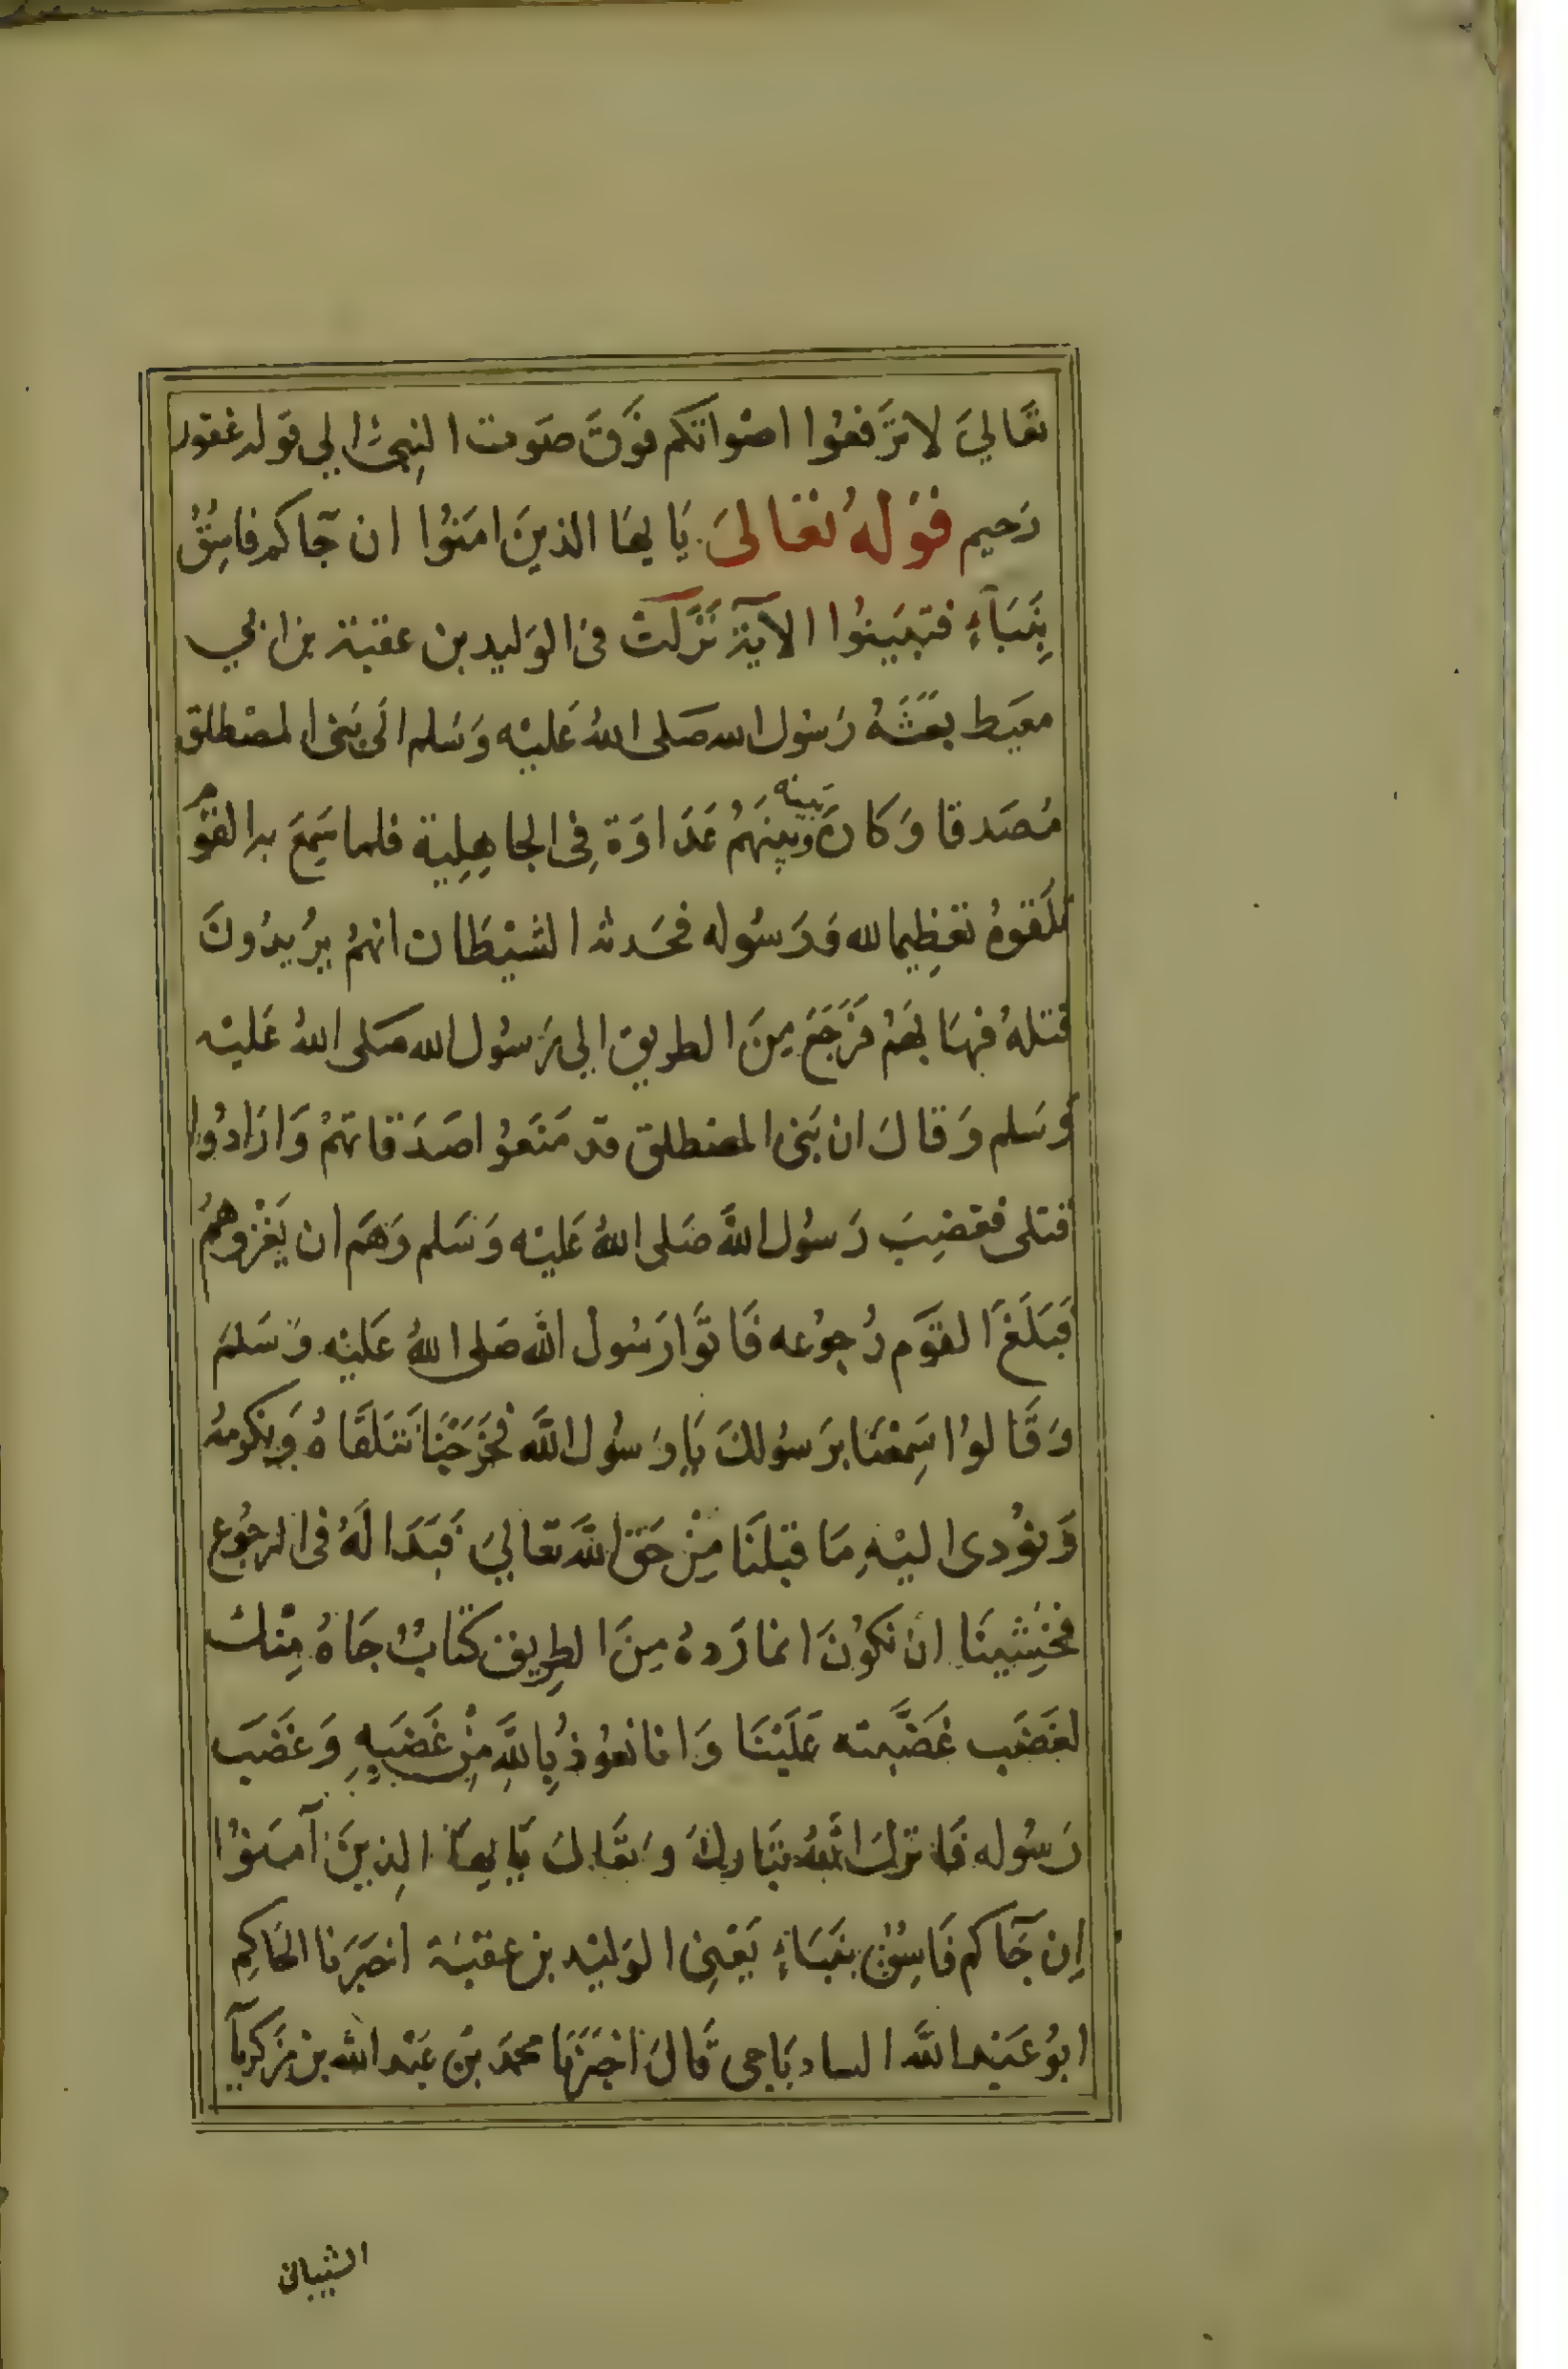 تعالى لا ترفعوا اصواتكم فوق صوت النبى الى قوله غفور
رحيم قوله تعالى يا يها الذين امنوا ان جآكم فاسق
بنبآء فتبينوا الآية نزلت فى الوليد بن عقبة بن ابي
معيط بعثه رسول الله صلى الله عليه وسلم الى بنى المصطلق
مصدقا وكان بينه وبينهم عداوة فى الجاهلية فلما سمع به القوم
تلقوه تعظيما لله ورسوله فحدثه الشيطان انهم يريدون
قتله فهابهم فرجع من الطريق الى رسول الله صلى الله عليه
وسلم وقال ان بنى المصطلق قد منعوا صدقاتهم وارادوا
قتلى فغضب رسول الله صلى الله عليه وسلم وهم ان يغزوهم
فبلغ القوم رجوعه فاتوا رسول الله صلى الله عليه وسلم
وقالوا سمعنا برسولك يا رسول الله فخرجنا نتلقاه ونكرمه
ونؤدى اليه ما قبلنا من حق الله تعالى فبدا له فى الرجوع
فخشينا ان نكون انما رده من الطريق كتاب جاه منك
لغضب غضبته علينا وانا نعوذ بالله من غضبه وغضب
رسوله فانزل الله تبارك وتعالى يا يها الذين آمنوا
إن جآكم فاسق بنباء يعنى الوليد بن عقبة اخبرنا الحاكم
ابو عبد الله السادياجى قال اخبرنا محمد بن عبد الله بن زكريآ
الشيبانى